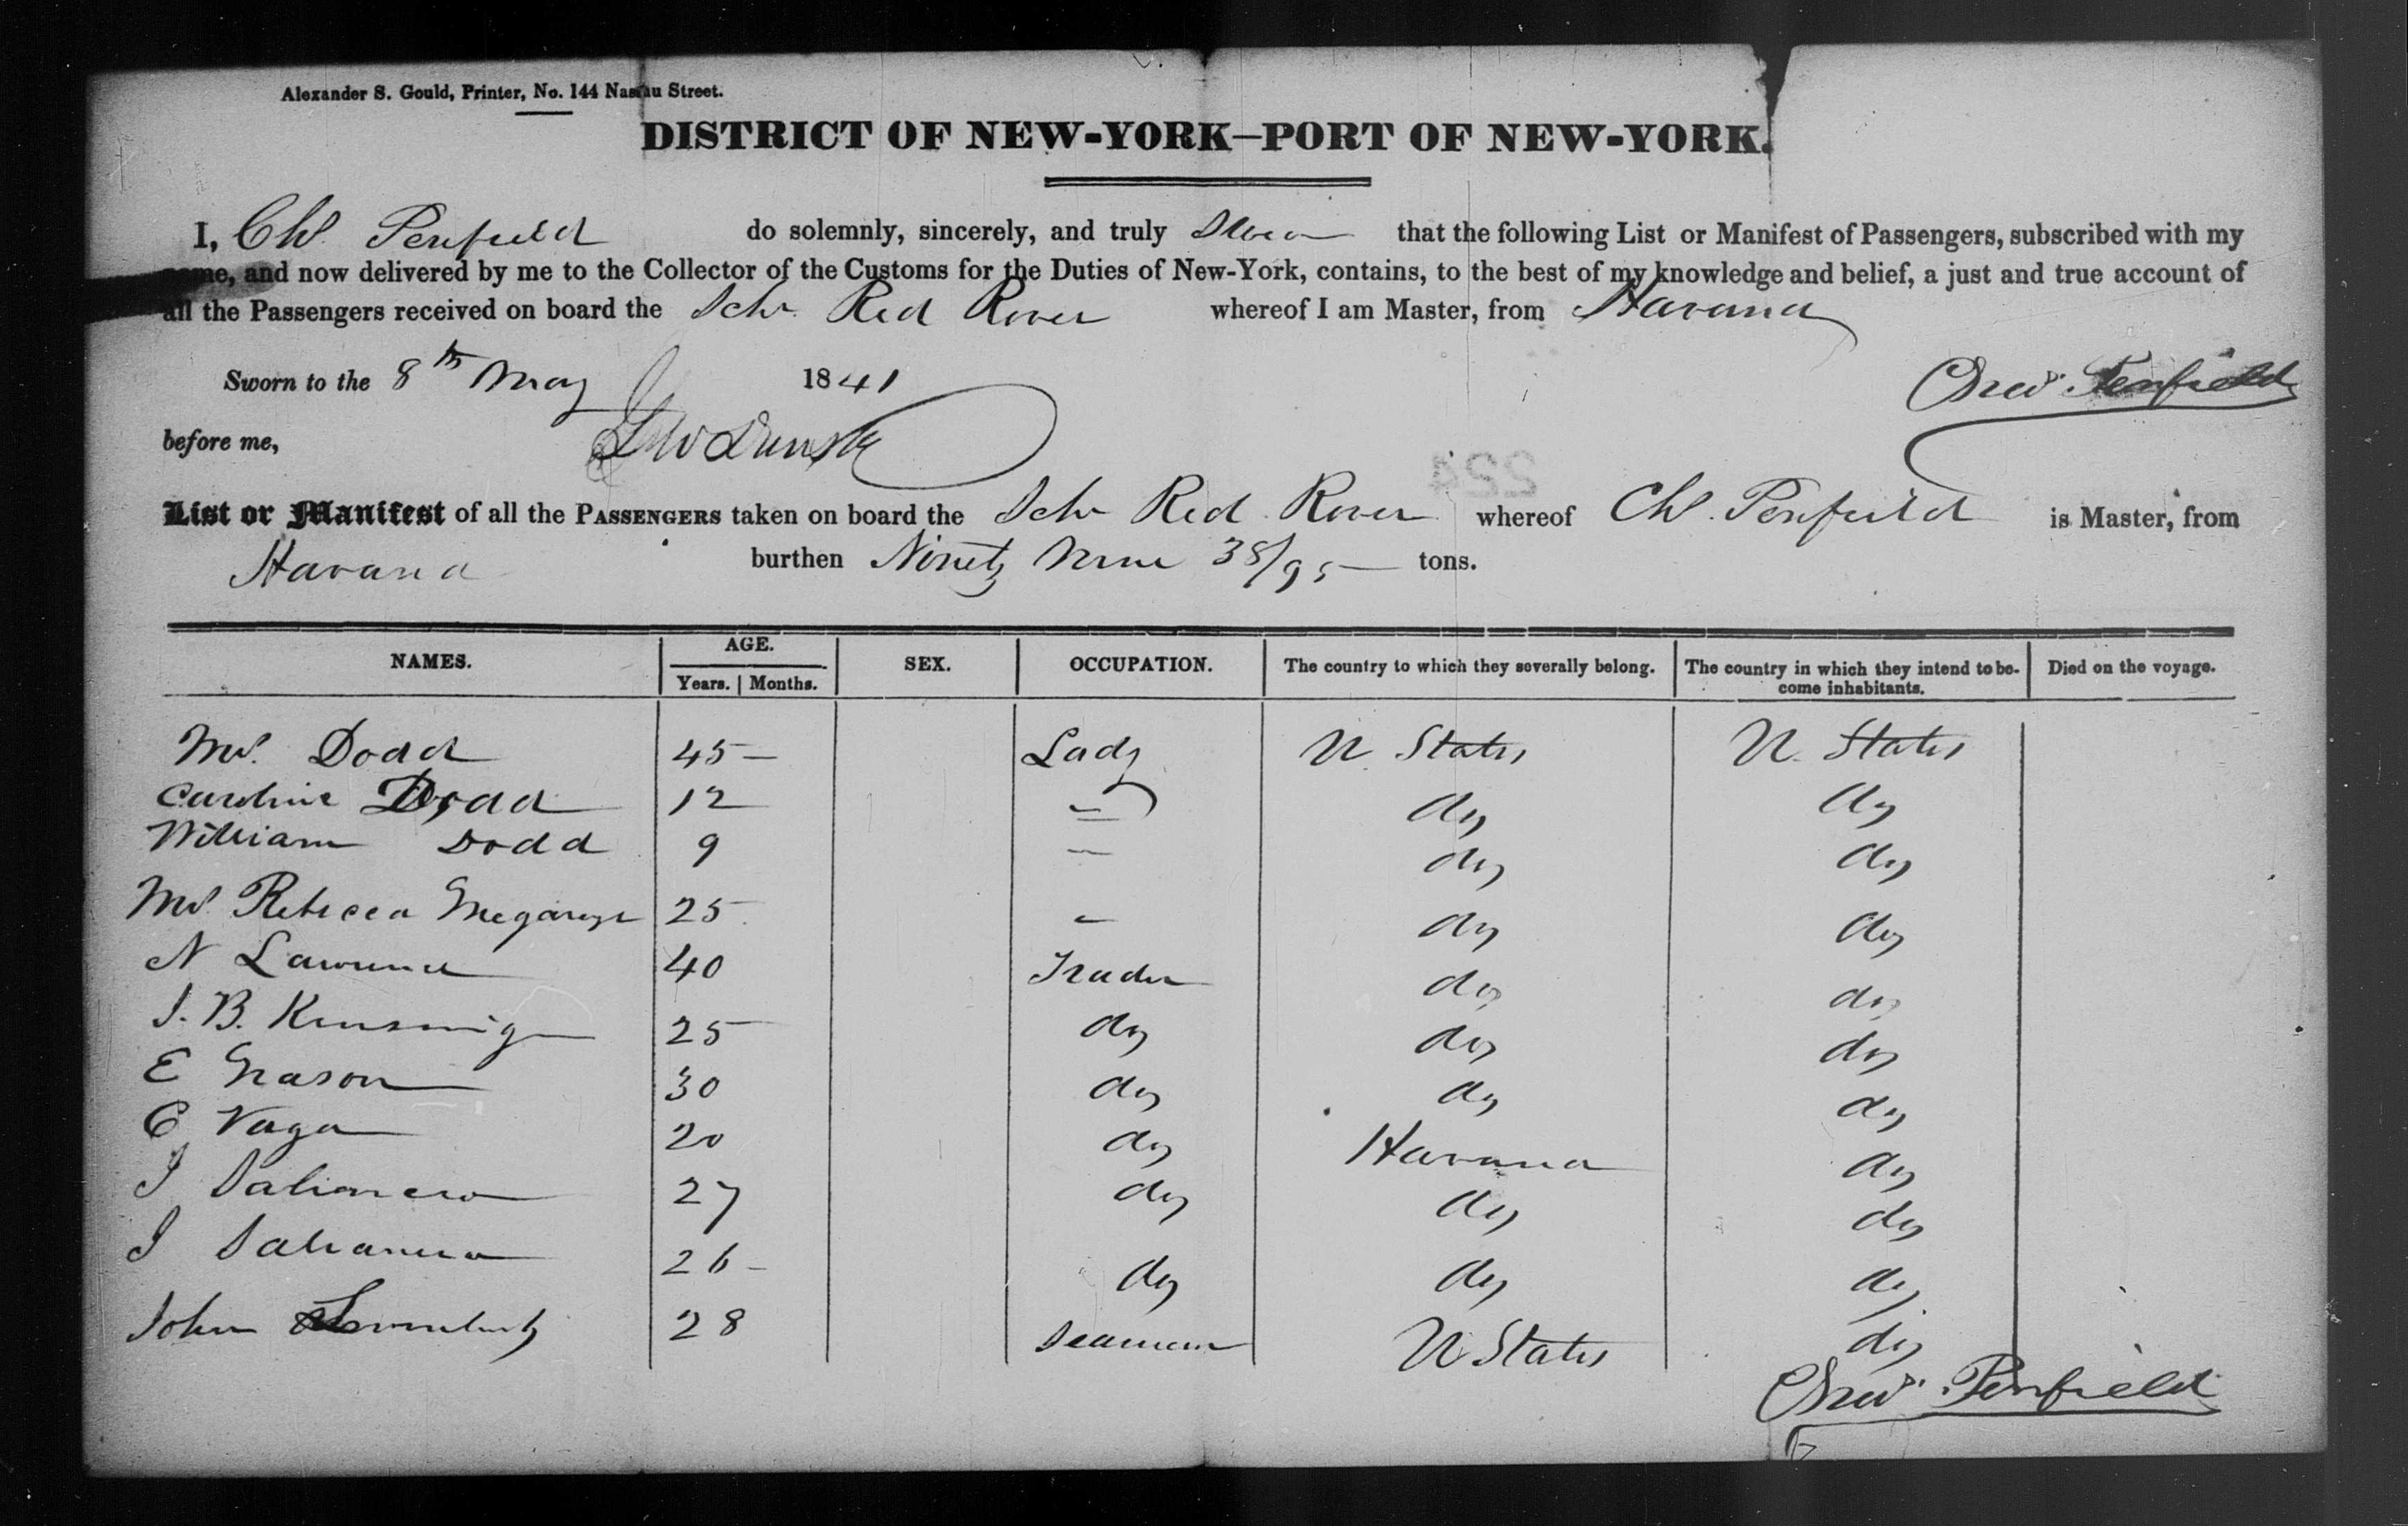 Alexander S. Gould, Printer, No. 144 Nassau Street.
DISTRICT OF NEW-YORK—PORT OF NEW-YORK.
I, Chs. Penfield do solemnly, sincerely, and truly swear that the following List or Manifest of Passengers, subscribed with my
name, and now delivered by me to the Collector of the Customs for the Duties of New-York, contains, to the best of my knowledge and belief, a just and true account of
all the Passengers received on board the Schr Red Rover whereof I am Master, from Havana
Sworn to the 8th May 1841
Penfield
before me,
224
List or Manifest of all the PASSENGERS taken on board the Schr Red Rover whereof Chs. Penfield is Master, from
Havana burthen Ninety Nine 38/95 tons.
NAMES. AGE. Years. Months. SEX. OCCUPATION. The country to which they severally belong. The country in which they intend to become inhabitants. Died on the voyage.
Mrs. Dodd 45 — Lady U. States U. States
Caroline Dodd 12 — do do
William Dodd 9 — do do
Mrs. Rebecca 25 — do do
N Lawrence 40 Trader do do
J. B. 25 do do do
E 30 do do do
C Vaga 20 do Havana do
J 27 do do do
J 26 — do do do
John 28 Seaman U States do
Penfield